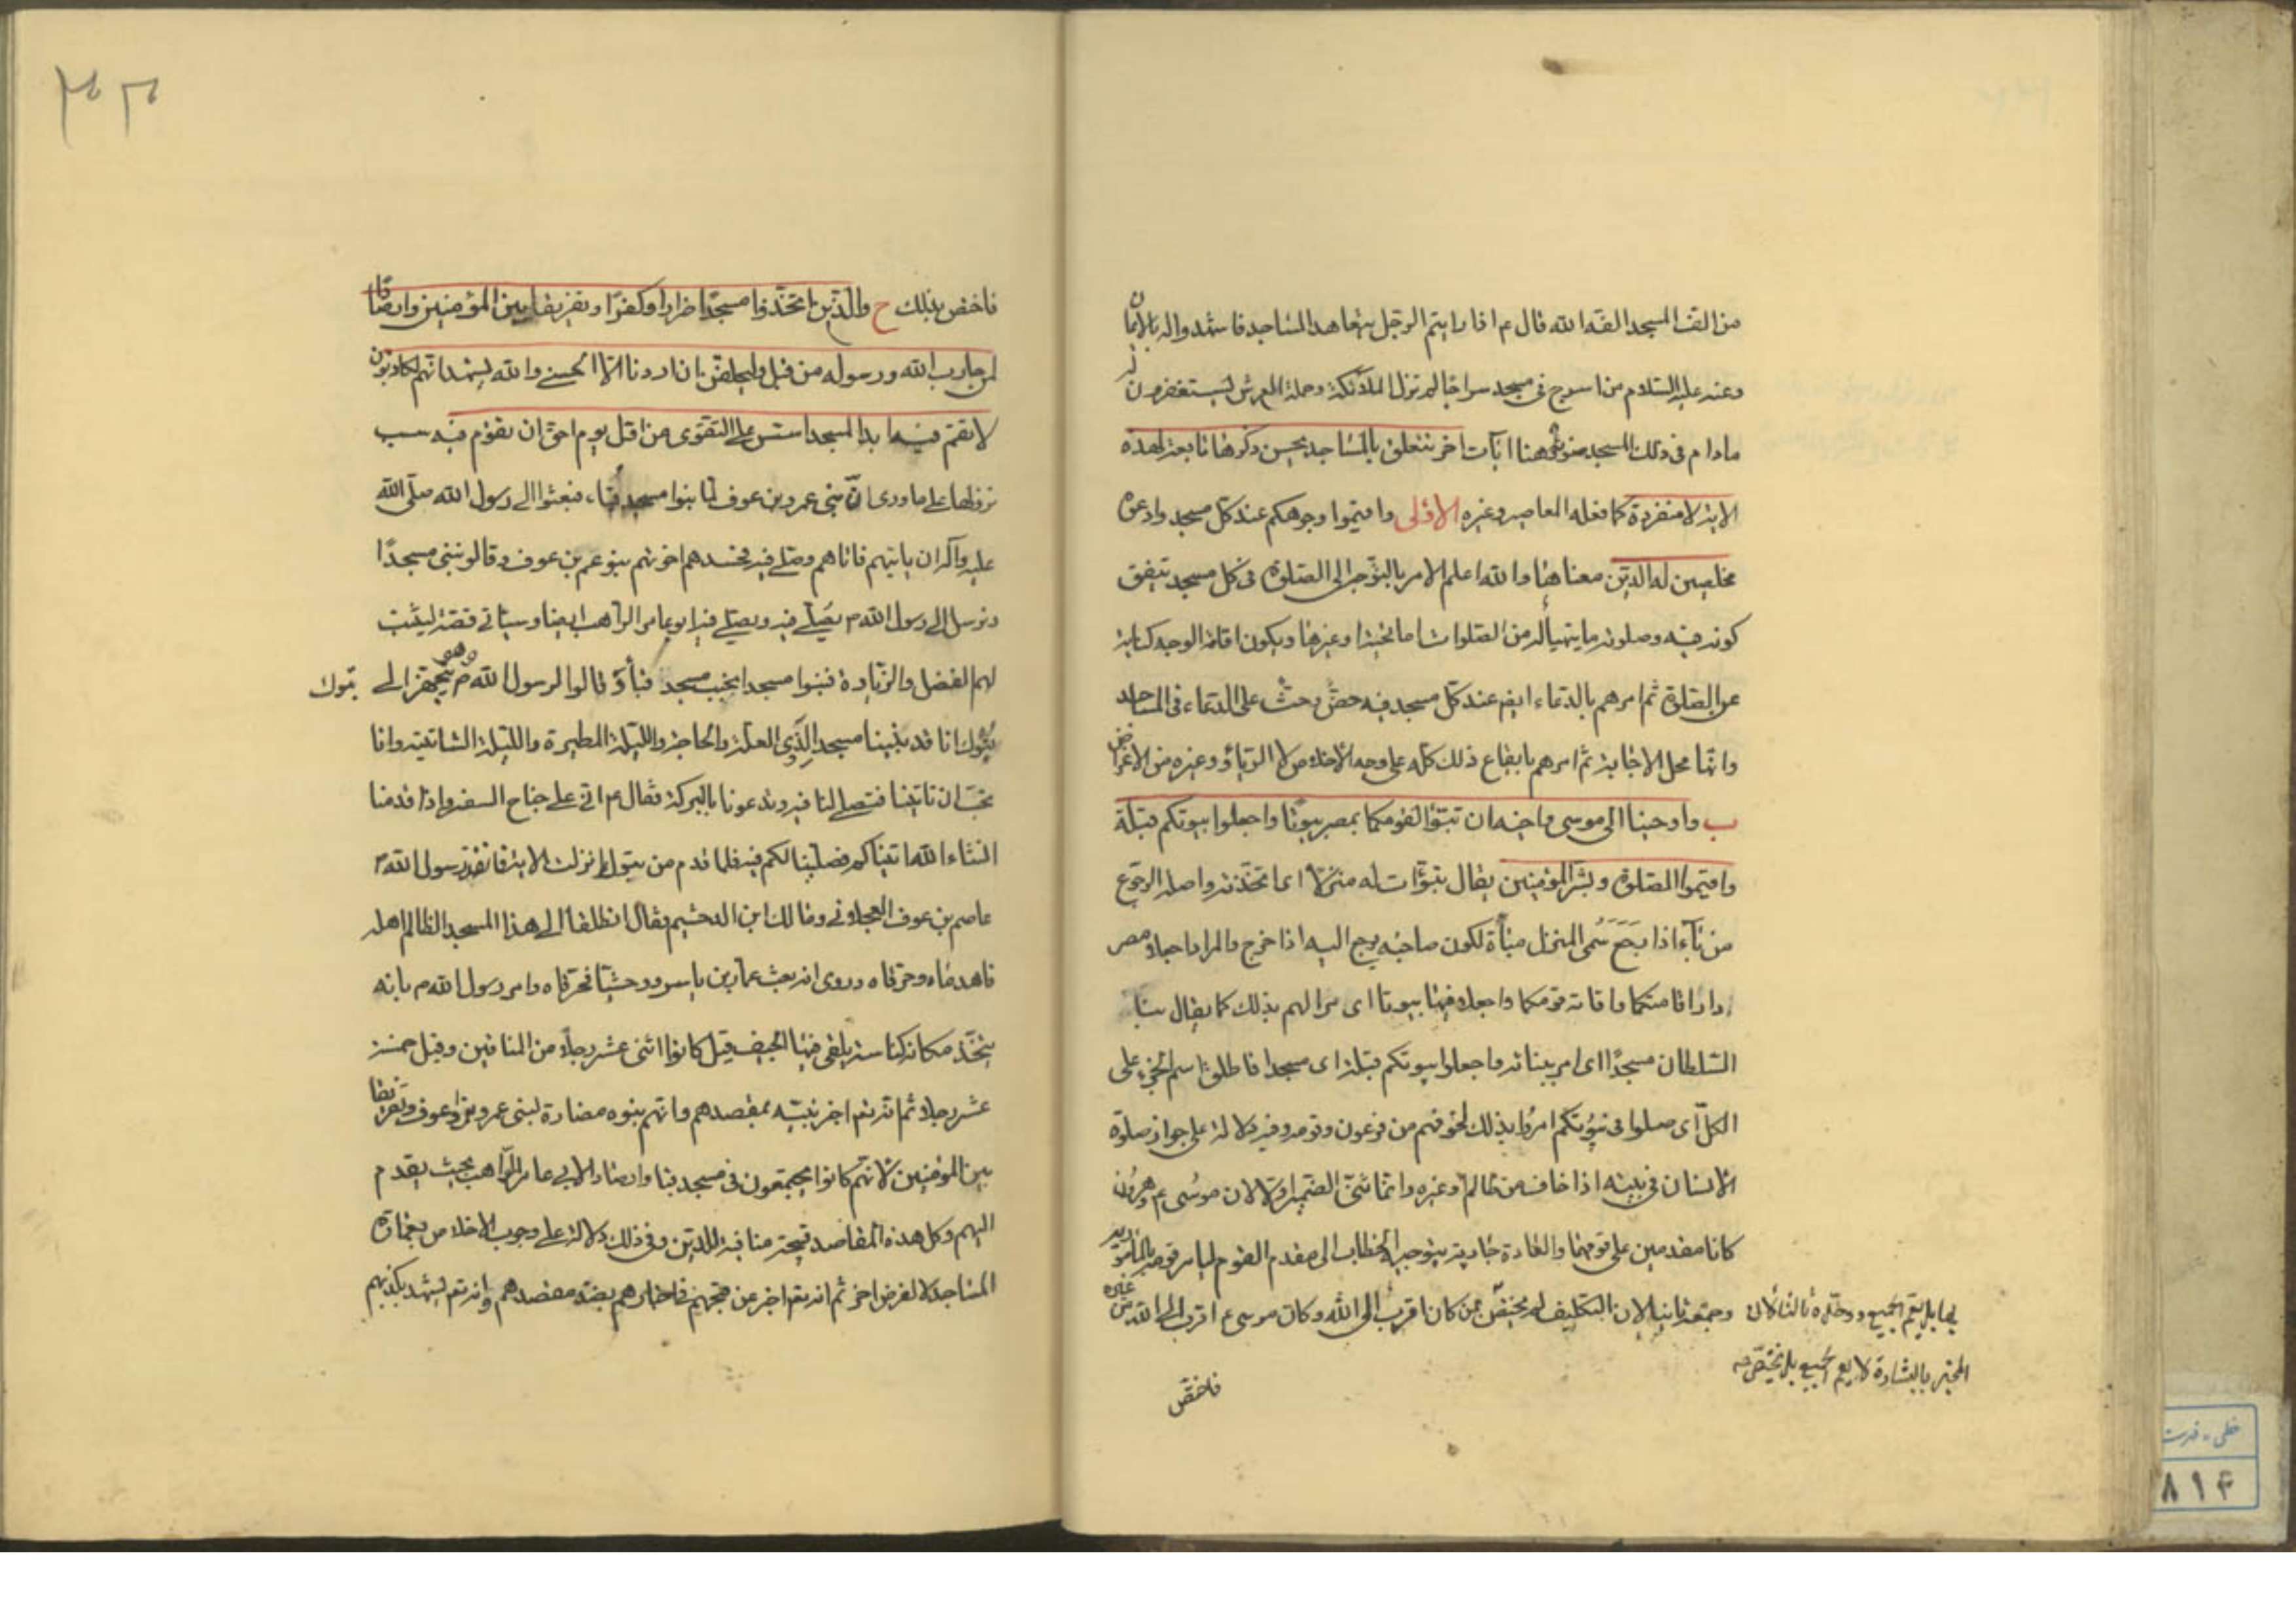 من الف المسجد الفه الله قال ع اذا رايتم الرجل يتعاهد المساجد فاشهدوا له بالايمان
وعنه عليه السلام من اسرج في مسجد سراجا لم تزل الملائكة وحملة العرش يستغفرون له
مادام في ذلك المسجد ضوئه وهنا ايات اخر تتعلق بالمساجد يحسن ذكرها تابعة لهذه
الاية لا منفردة كما فعله المعاصر وغيره الاولى واقيموا وجوهكم عند كل مسجد وادعوه
مخلصين له الدين معناها والله اعلم الامر بالتوجه الى الصلوة في كل مسجد يتفق
كونه فيه وصلوته ما يتهيأ له من الصلوات اما تحية او غيرها ويكون اقامة الوجه كناية
عن الصلوة ثم امرهم بالدعاء ايضا عند كل مسجد فيه حضّ وحثّ على الدعاء في المساجد
وانها محل الاجابة ثم امرهم بايقاع ذلك كله على وجه الاخلاص لا الرياء وغيره من الاغراض
ب واوحينا الى موسى واخيه ان تبوّءا لقومكما بمصر بيوتا واجعلوا بيوتكم قبلة
واقيموا الصلوة وبشّر المؤمنين يقال تبوّات له منزلا اى اتخذته واصله الرجوع
من باء اذا رَجَعَ سُمى المنزل مباة لكون صاحبه يرجع اليه اذا خرج والمراد اجعلا مصر
دار اقامتكما واقامة قومكما واجعلا فيها بيوتا اى مرا لهم بذلك كما يقال بنا
السلطان مسجدًا اى امر ببنائه واجعلوا بيوتكم قبلة اى مسجدا فاطلق اسم الجزء على
الكل اى صلوا في بيوتكم امروا بذلك لخوفهم من فرعون وقومه وفيه دلالة على جواز صلوة
الانسان في بيته اذا خاف من ظالم او غيره وانما ثنّى الضمير اولا لان موسى ع وهرون
كانا مقدمين على قومهما والعادة جارية بتوجيه الخطاب الى مقدم القوم ليامر قومه بالمأمور به
وجمعه ثانيا لان التكليف لم يختص بمن كان اقرب الى الله وكان موسى ع اقرب الى الله من غيره
بها بل يعم الجميع ووحّده ثالثا لان
المخبر بالبشارة لا يعم الجميع بل يختص به
فاختص
فاختص بذلك ح والذين اتخذوا مسجدًا ضرارا وكفرًا وتفريقا بين المؤمنين وارصادًا
لمن حارب الله ورسوله من قبل وليحلفنّ ان اردنا الا الحسنى والله يشهد انهم لكاذبون
لا تقم فيه ابدا لمسجد اسّس على التقوى من اوّل يوم احق ان تقوم فيه سبب
نزولها على ما روى انّ بني عمرو بن عوف لما بنوا مسجد قباء، فبعثوا الى رسول الله صلّى الله
عليه وآله ان ياتيهم فاتاهم وصلى فيه فحسدهم اخوتهم بنو غنم بن عوف وقالو نبني مسجدًا
ونرسل الى رسول الله م يصلّي فيه ويصلي فيه ابو عامر الراهب ايضا وسياتي قصته ليثبت
لهم الفضل والزيادة فبنوا مسجدا بجنب مسجد قبا وقالوا لرسول الله م وهو يتجهز الى تبوك
تبوك انا قد بنينا مسجدا لذي العلة والحاجة والليلة المطيرة والليلة الشاتية وانا
نحبّ ان تاتينا فتصلى لنا فيه وتدعونا بالبركة فقال ع انى على جناح السفر واذا قدمنا
انشاء الله اتيناكم فصلّينا لكم فيه فلما قدم من تبوك نزلت الاية فانفذ رسول الله م
عاصم بن عوف العجلاني ومالك ابن الدخشم فقال انطلقا الى هذا المسجد الظالم اهله
فاهدماه وحرقاه وروى انه بعث عمار بن ياسر ووحشيّا فحرّقاه وامر رسول الله م بانه
يتخذ مكانه كناسة يلقى فيها الجيف قيل كانوا اثنى عشر رجلًا من المنافقين وقيل خمسة
عشر رجلا ثم انه تعالى اخبر نبيّه بمقصدهم وانهم بنوه مضارة لبنى عمرو بن عوف وتفريقا
بين المؤمنين لانهم كانوا يجتمعون في مسجد قبا وارصادا لابي عامر الراهب بحيث يقدم
اليهم وكل هذه المقاصد قبيحة منافية للدين وفي ذلك دلالة على وجوب الاخلاص بعمارة
المساجد لا لغرض اخر ثم انه تعالى اخبر عن حجتهم في اخبارهم بضد مقصدهم وانه تعالى يشهد بكذبهم
خطى
٨١۴